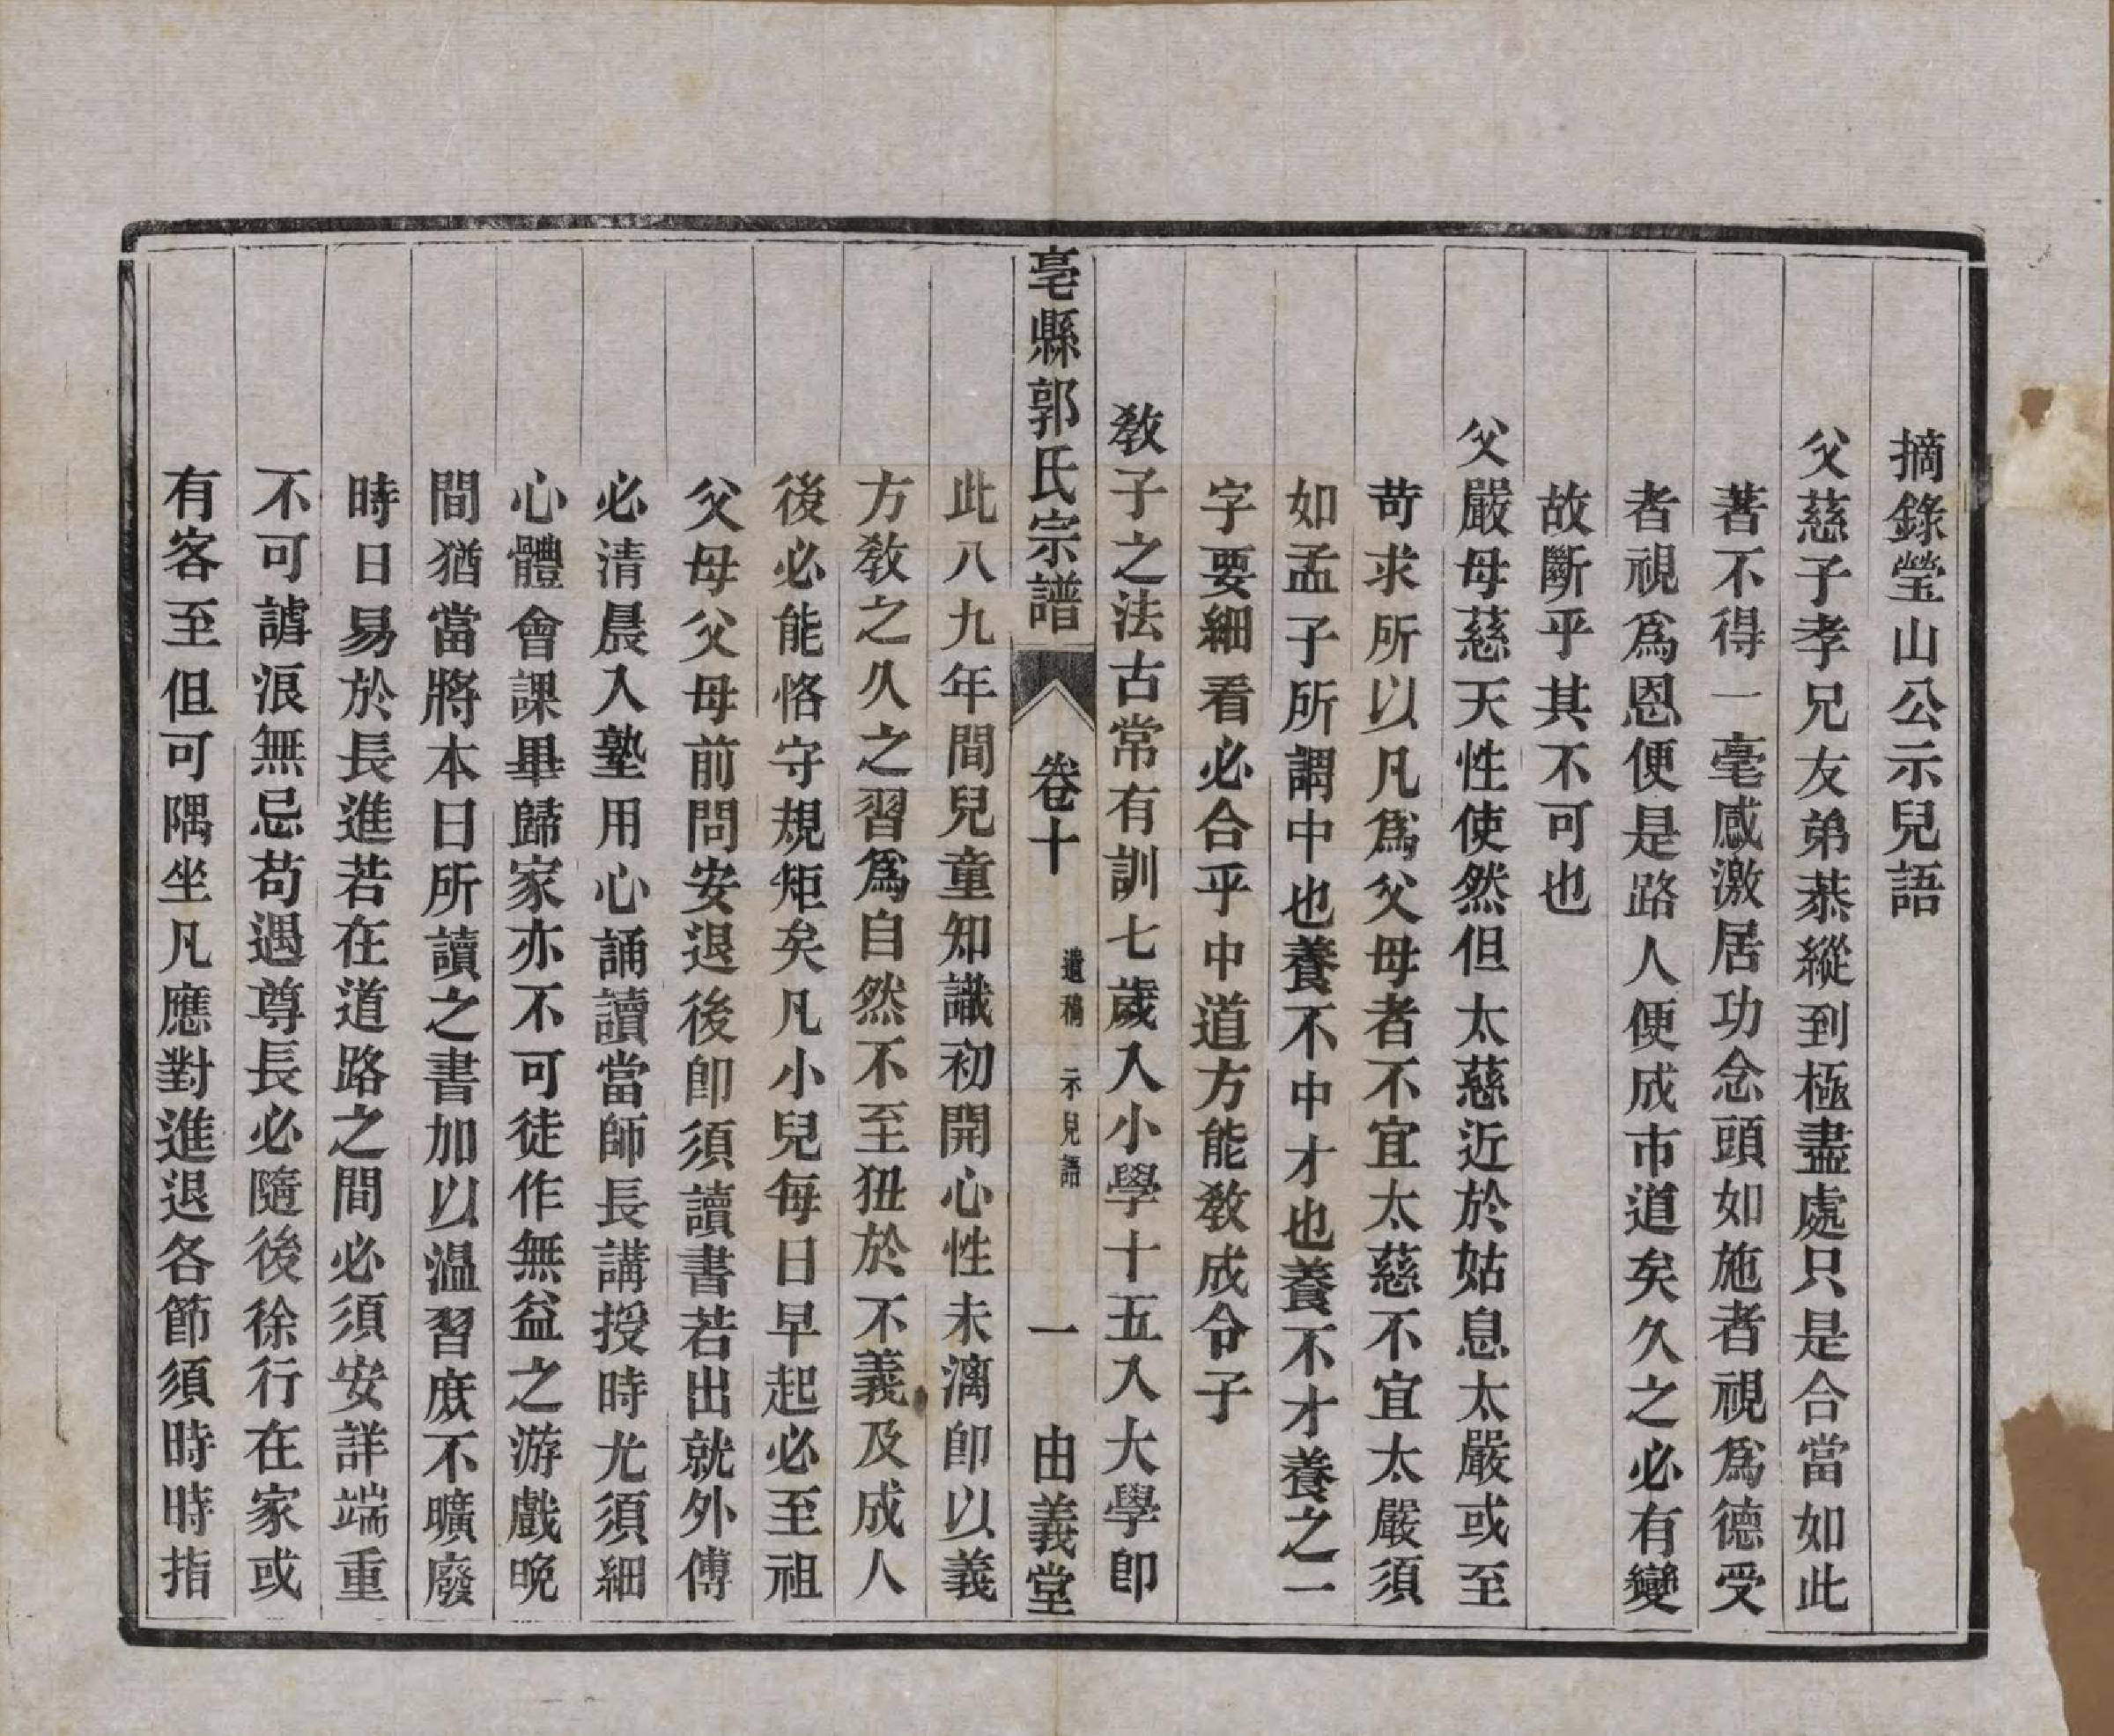 摘錄瑩山公示兒語
父慈子孝兄友弟恭縱到極盡處只是合當如此
著不得一毫感激居功念頭如施者視爲德受
者視爲恩便是路人便成市道矣久之必有變
故斷乎其不可也
父嚴母慈天性使然但太慈近於姑息太嚴或至
苛求所以凡爲父母者不宜太慈不宜太嚴須
如孟子所謂中也養不中才也養不才養之一
字要細看必合乎中道方能敎成令子
敎子之法古常有訓七歲入小學十五入大學卽
亳縣郭氏宗譜
卷十
遺稿 示兒語
一
由義堂
此八九年間兒童知識初開心性未漓卽以義
方敎之久之習爲自然不至狃於不義及成人
後必能恪守規矩矣凡小兒每日早起必至祖
父母父母前問安退後卽須讀書若出就外傅
必清晨入塾用心誦讀當師長講授時尤須細
心體會課畢歸家亦不可徒作無益之游戲晚
間猶當將本日所讀之書加以溫習庶不曠廢
時日易於長進若在道路之間必須安詳端重
不可謔浪無忌苟遇尊長必隨後徐行在家或
有客至但可隅坐凡應對進退各節須時時指